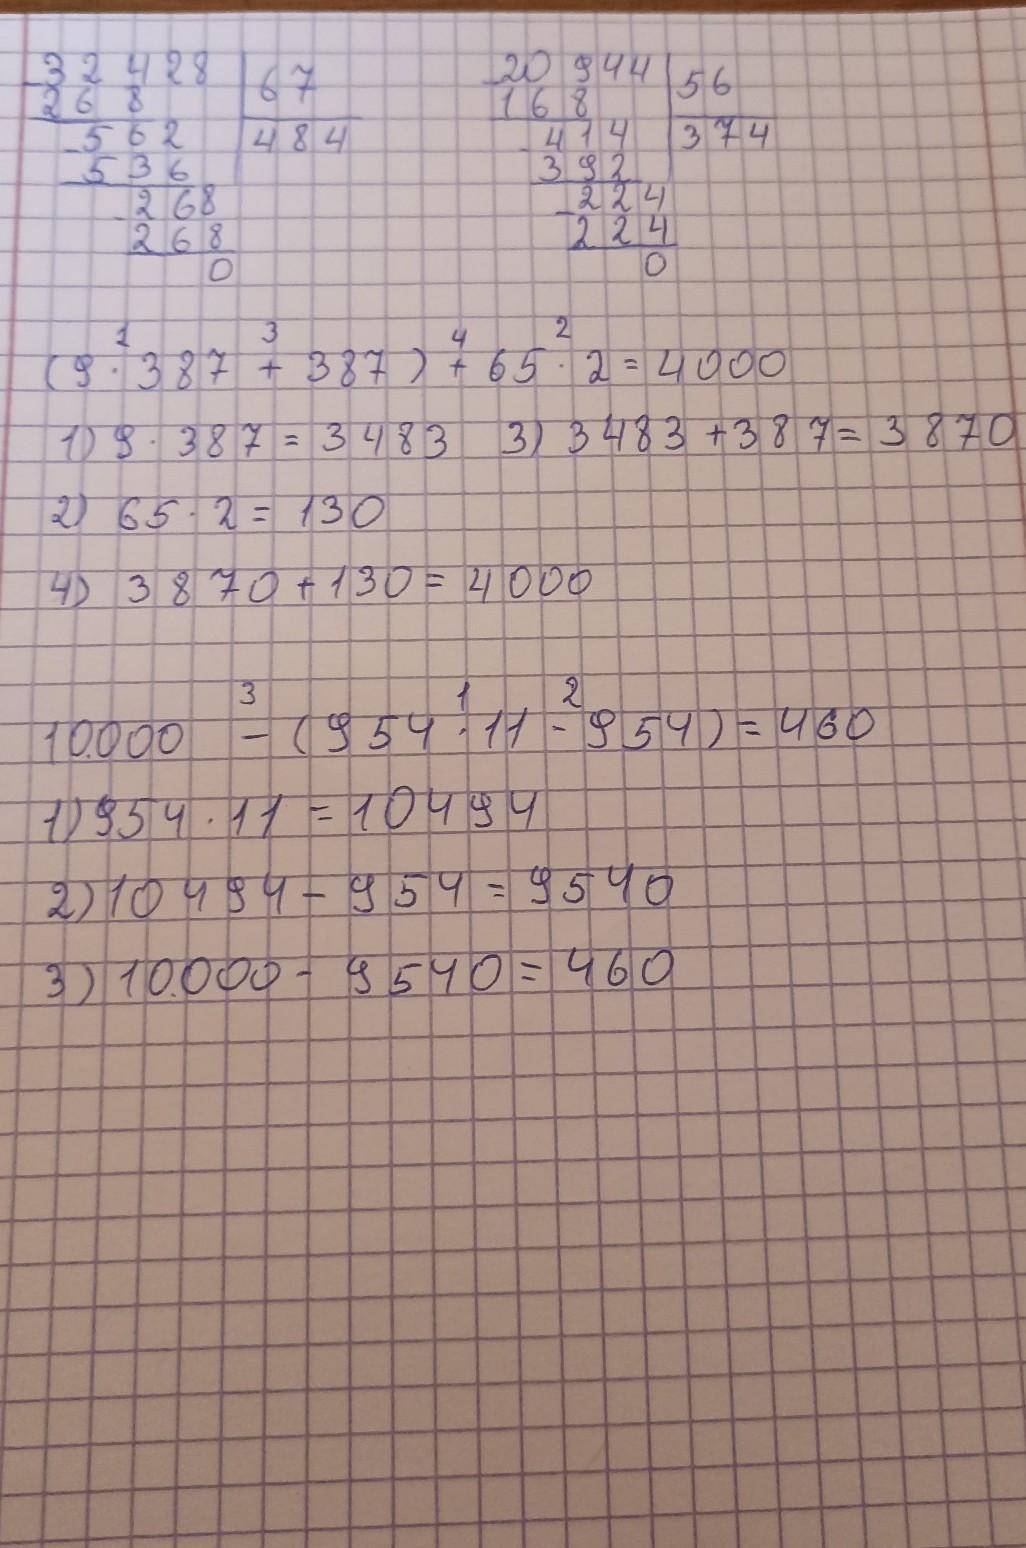 32428 | 67
- 268 | 484
- 562
536
- 268
268
0
20944 | 56
- 168 | 374
- 414
392
- 224
224
0
1 3 4 2
(9 · 387 + 387) + 65 · 2 = 4000
1) 9 · 387 = 3483 3) 3483 + 387 = 3870
2) 65 · 2 = 130
4) 3870 + 130 = 4000
3 1 2
10.000 - (954 · 11 - 954) = 460
1) 954 · 11 = 10494
2) 10494 - 954 = 9540
3) 10.000 - 9540 = 460